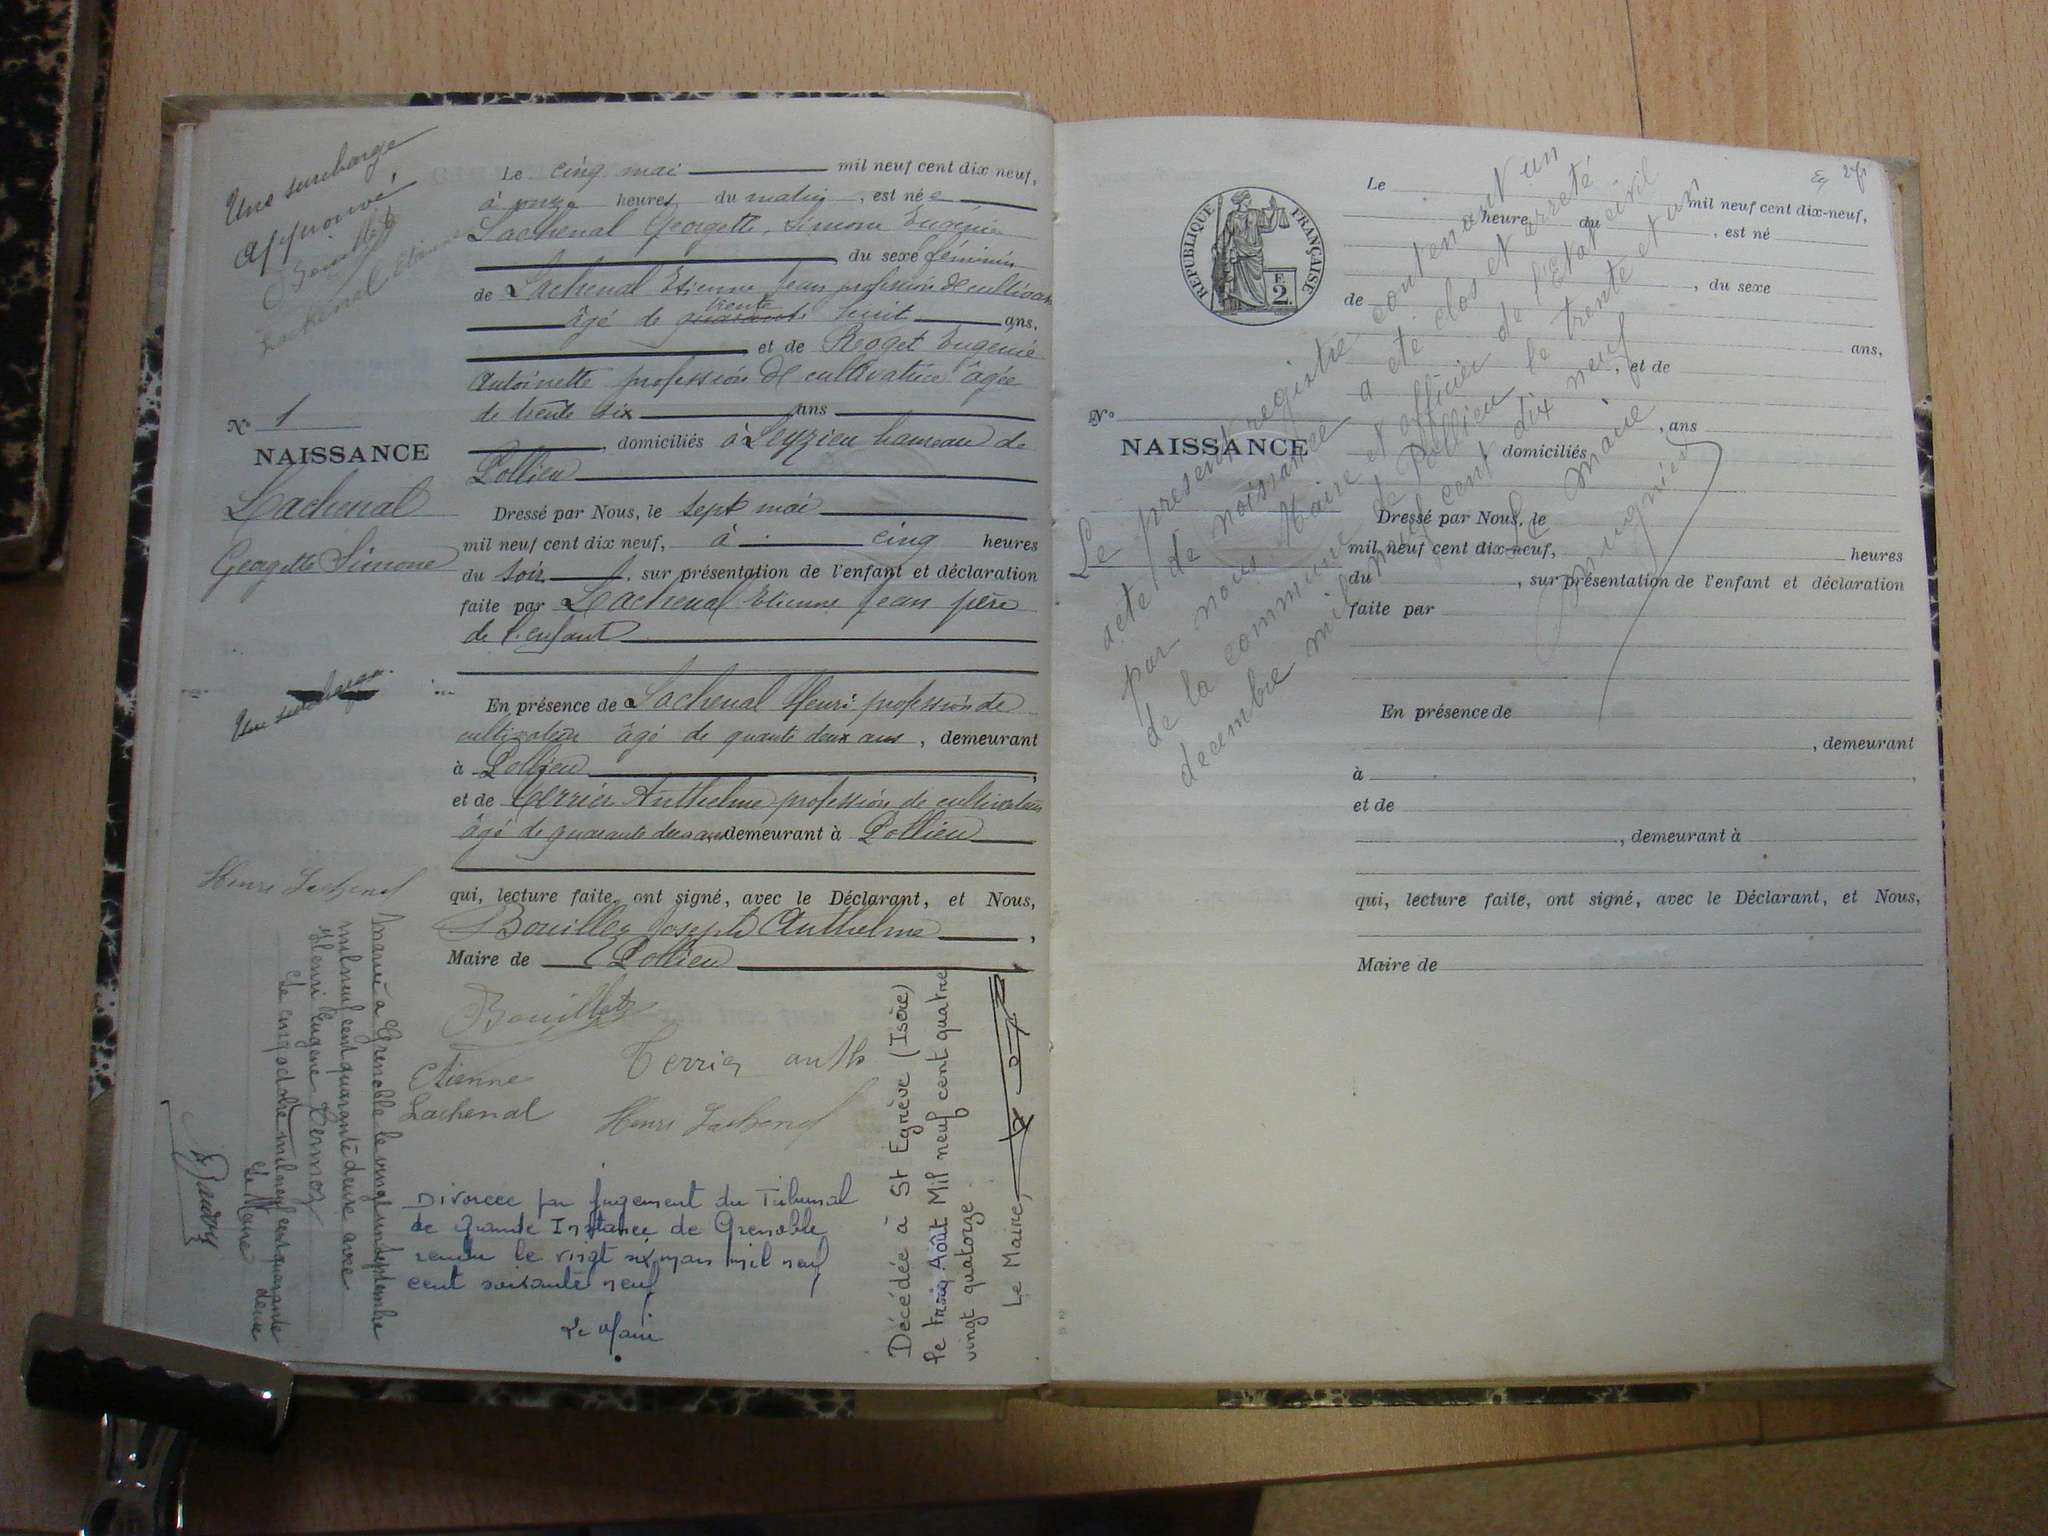 Une surcharge
approuvé
Bouillet
Lachenal Etienne
Le cinq mai mil neuf cent dix neuf,
à onze heures du matin, est née
Lachenal Georgette, Simone Eugénie
, du sexe féminin
de Lachenal Etienne Jean profession de cultivateur
trente
âgé de quarante huit ans,
et de Roget Eugénie
Antoinette profession de cultivatrice âgée
de trente six ans
, domiciliés à Leyzieu hameau de
Pollieu
N° 1
NAISSANCE
Lachenal
Georgette Simone
Dressé par Nous, le sept mai
mil neuf cent dix neuf, à cinq heures
du soir, sur présentation de l'enfant et déclaration
faite par Lachenal Etienne Jean père
de l'enfant
Une surcharge
En présence de Lachenal Henri profession de
cultivateur âgé de quante deux ans, demeurant
à Pollieu
et de Terrier Anthelme profession de cultivateur
âgé de quarante deux ans demeurant à Pollieu
qui, lecture faite, ont signé, avec le Déclarant, et Nous,
Bouillet Joseph Anthelme,
Maire de Pollieu
Henri Lachenal
Bouillet
Terrier anth
Etienne
Lachenal
Henri Lachenal
Marié à Grenoble le vingt un septembre
mil neuf cent quarante deux avec
Henri Eugène Termoz
le cinq octobre mil neuf cent quarante
deux
Le Maire
Divorcée par jugement du Tribunal
de Grande Instance de Grenoble
rendu le vingt six mars mil neuf
cent soixante neuf
Le Maire
Décédée à St Egrève (Isère)
le Août Mil neuf cent quatre
vingt quatorze
Le Maire,
RÉPUBLIQUE FRANÇAISE
E
2.
Le mil neuf cent dix-neuf,
heure du , est né
, du sexe
de
ans,
, et de
N°
NAISSANCE
, ans
domiciliés
Dressé par Nous, le
mil neuf cent dix-neuf, heures
du , sur présentation de l'enfant et déclaration
faite par
En présence de
, demeurant
à
et de
, demeurant à
qui, lecture faite, ont signé, avec le Déclarant, et Nous,
Maire de
Le présent registre contenant un
acte de naissance a été clos et arreté
par nous Maire et officier de l'Etat civil
de la commune de Pollieu le trente et un
decembre mil neuf cent dix neuf
Le Maire